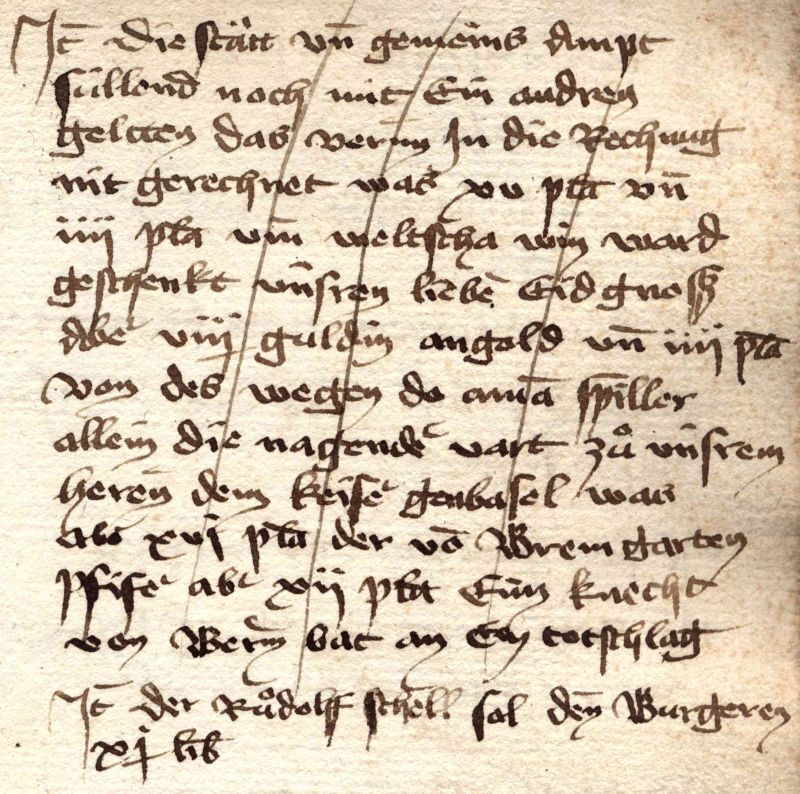 Jt̄ die stätt vn̄ gemeins ampt
süllend noch mit Ein andren
geltten das verim̄ Jn die Rechnung
nit gerechnet was xv pla vn̄
iiij pla vm̄ weltscha win ward
geschenkt vnsren liebē Eidgnossz
aber viiij guldin an gold vn̄ iiij pla
von des wegen do aman spiller
allein die nagender vart zů vnsrem
heren dem keiser gen basel was
aber xvj pla der vō Bremgarten
pfifer aber xij pla Eim knecht
von Bern bat an Ein totschlag
Jt̄ der Růdolff schell sol den Burgeren
xj lib